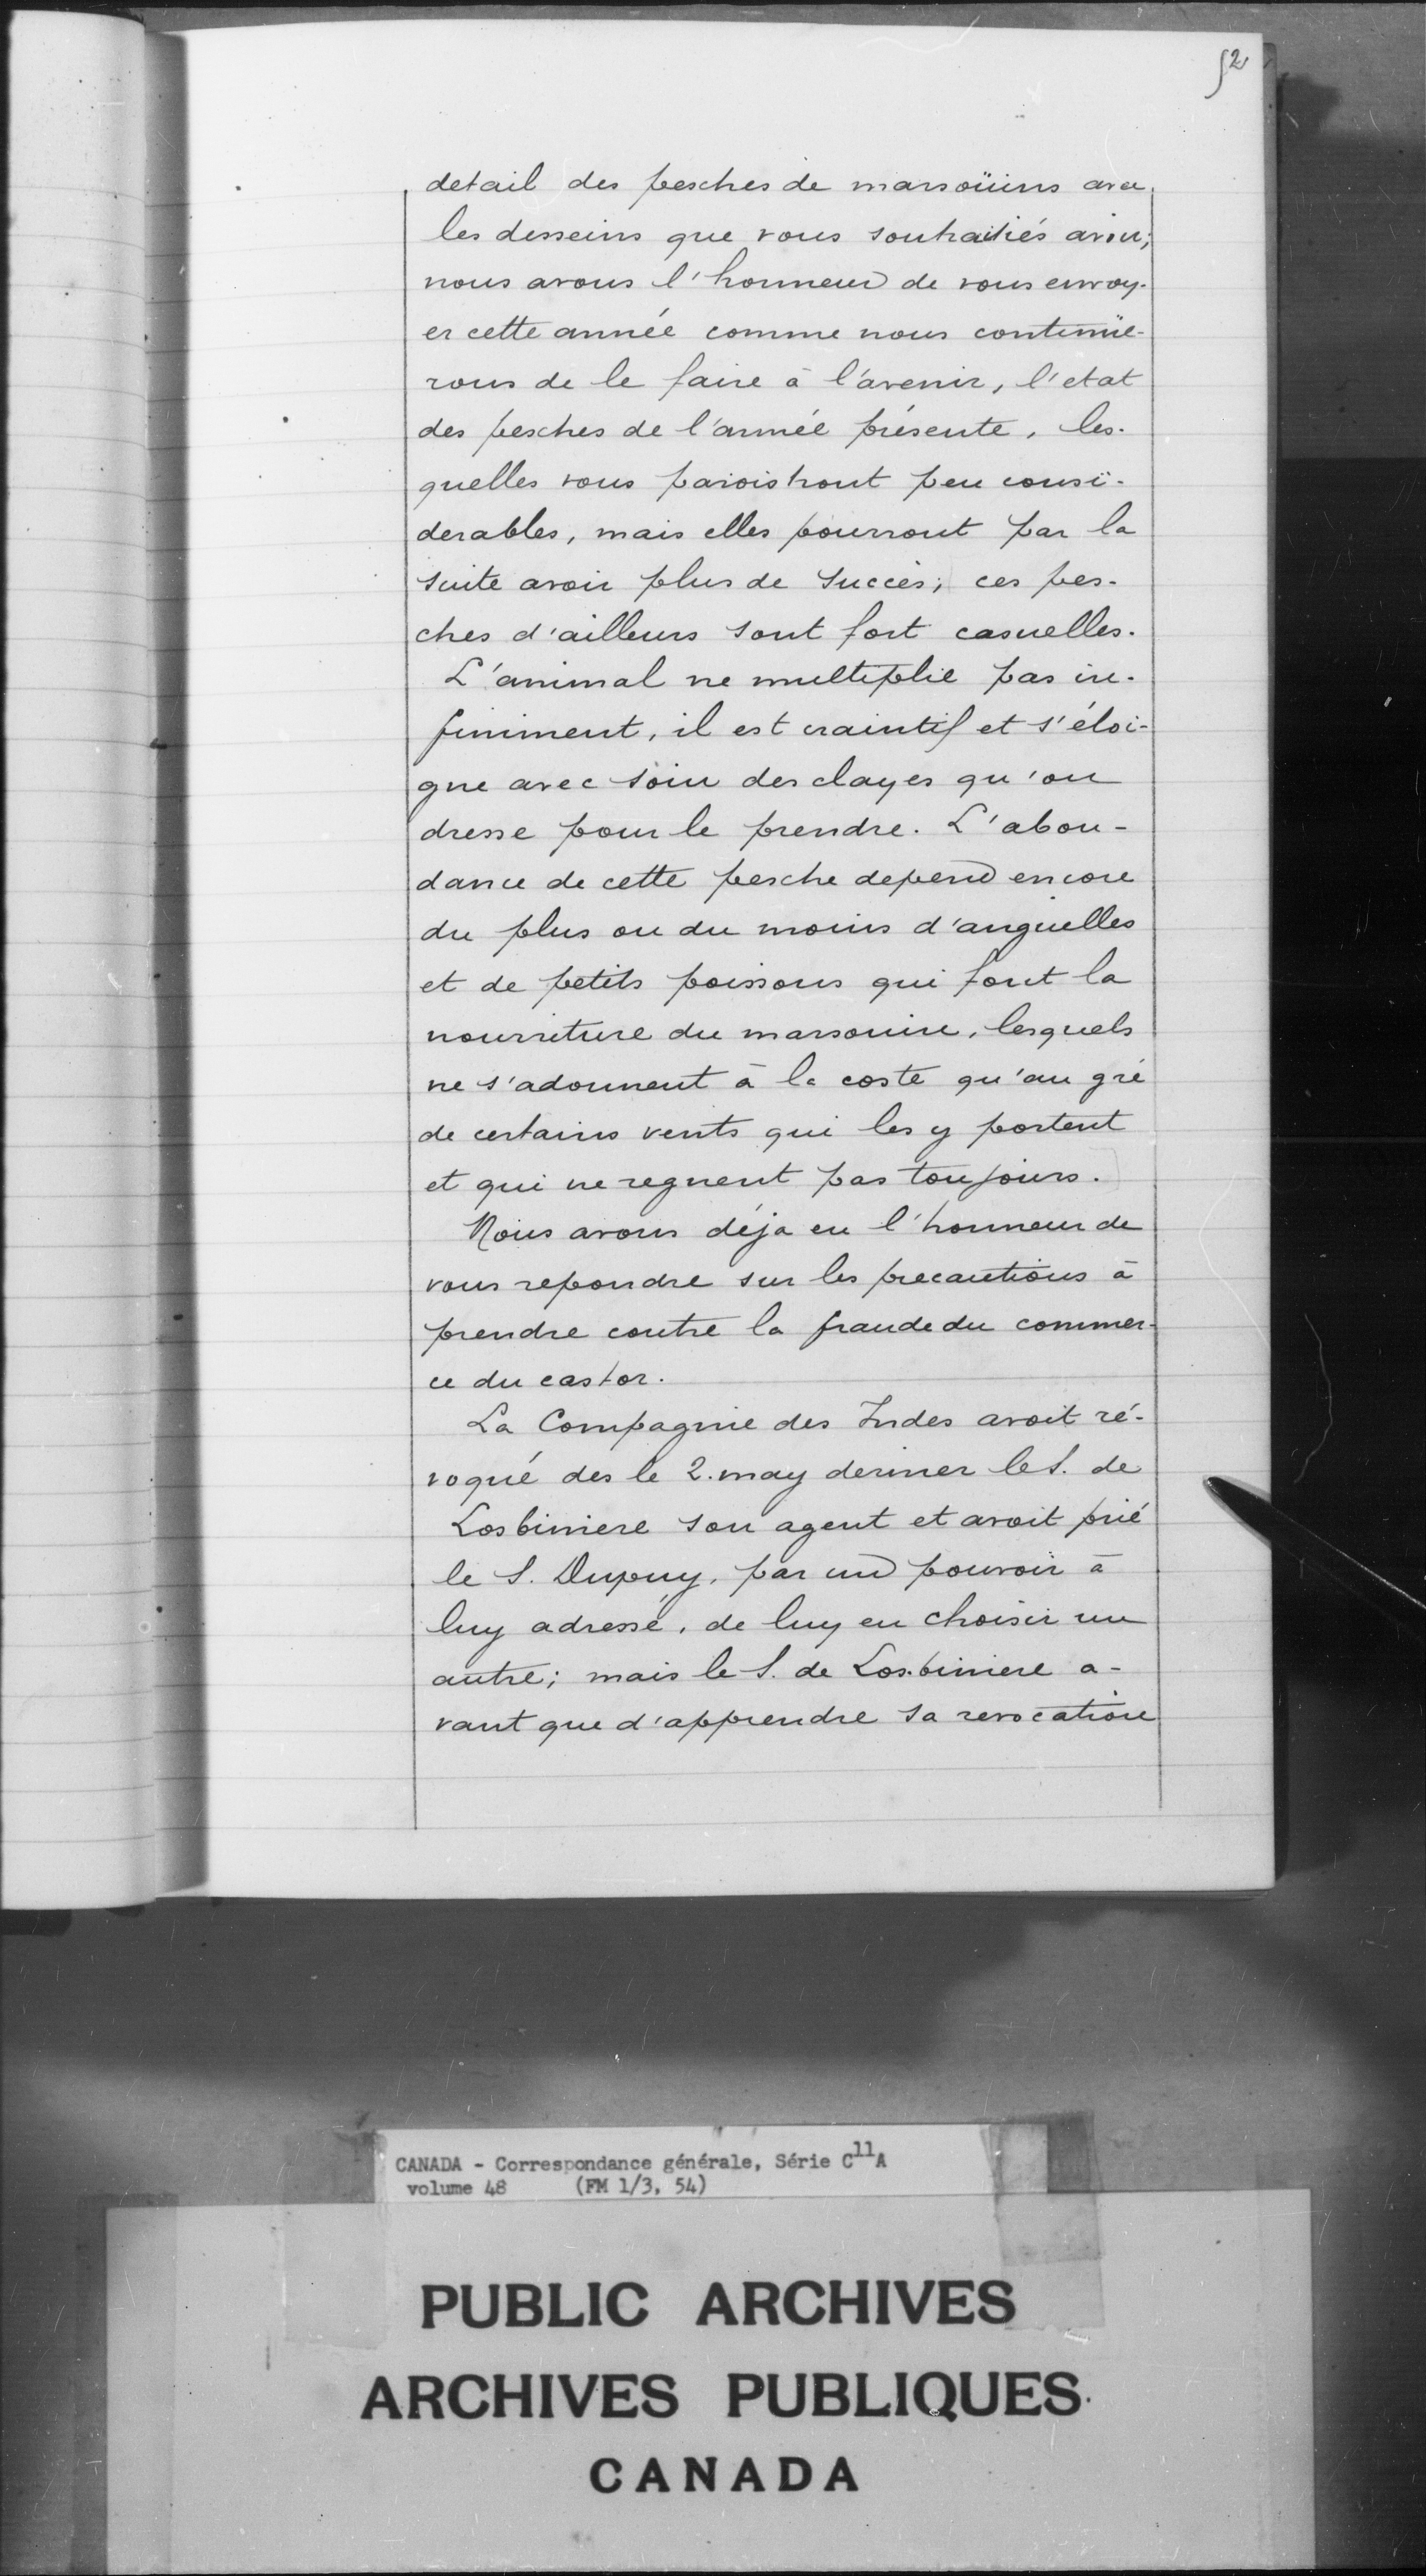 52
detail des pesches de marsoüins avec
les desseins que vous souhaitiés avoir;
nous avons l'honneur de vous envoy-
er cette année comme nous continüe-
rons de le faire à l'avenir, l'etat
des pesches de l'année présente, les-
quelles vous paroistront peu consi-
derables, mais elles pourront par la
suite avoir plus de succès; ces pes-
ches d'ailleurs sont fort casuelles.
L'animal ne multiplie pas in-
finiment, il est craintif et s'éloi-
gne avec soin des clayes qu'on
dresse pour le prendre. L'abon-
dance de cette pesche depend encore
du plus ou du moins d'anguelles
et de petits poissons qui font la
nourriture du marsouin, lesquels
ne s'adonnent à la coste qu'au gré
de certains vents qui les y portent
et qui ne regnent pas toujours.
Nous avons déja eu l'honneur de
vous repondre sur les precautions à
prendre contre la fraude du commer-
ce du castor.
La Compagnie des Indes avoit ré-
voqué des le 2. may dernier le S. de
Losbiniere son agent et avoit prié
le S. Dupuy, par un pouvoir à
luy adressé, de luy en choisir un
autre; mais le S. de Losbiniere a-
vant que d'apprendre sa revocation
CANADA - Correspondance générale, Série C11A
volume 48 (FM 1/3, 54)
PUBLIC ARCHIVES
ARCHIVES PUBLIQUES
CANADA